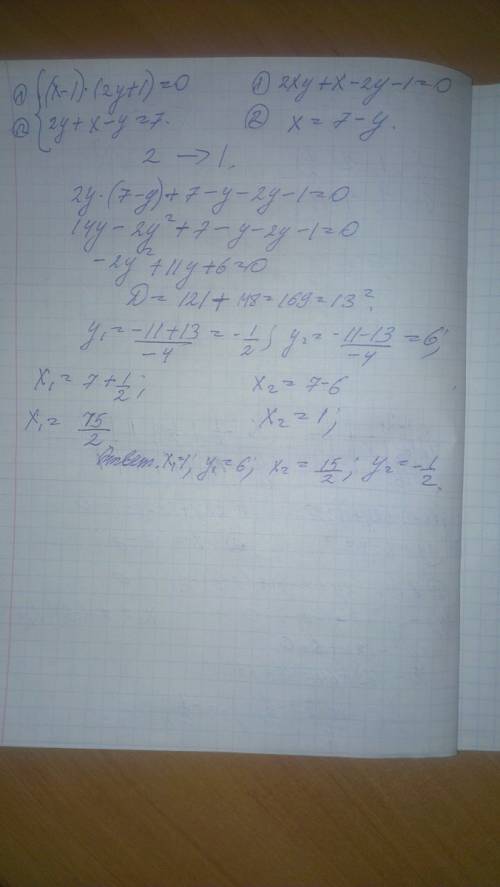 ① { (x-1)·(2y+1)=0   ① 2xy+x-2y-1=0
② { 2y+x-y=7.   ② x=7-y.
2 → 1.
2y·(7-y)+7-y-2y-1=0
14y-2y²+7-y-2y-1=0
-2y²+11y+6=0
D=121+48=169=13².
y₁=(-11+13)/(-4)=-1/2; y₂=(-11-13)/(-4)=6;
x₁=7+1/2;   x₂=7-6
x₁=15/2   x₂=1;
Ответ. x₁=1; y₁=6; x₂=15/2; y₂=-1/2.